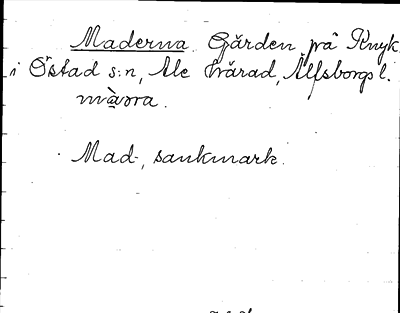 Maderna. Gården på Knyk
i Östad s:n, Ale härad, Älfsborgs l.
màora.
Mad-, sankmark.